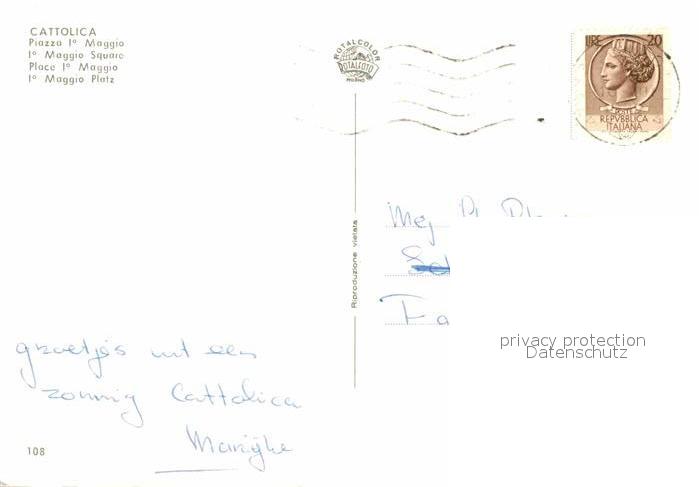 CATTOLICA
Piazza 1º Maggio
1º Maggio Square
Place 1º Maggio
1º Maggio Platz
ROTALCOLOR
ROTALFOTO
MILANO
LIRE 20
POSTE
REPVBBLICA
ITALIANA
Riproduzione vietata
Mej
privacy protection
Datenschutz
groetjes uit een
zonnig Cattolica
Marijke
108